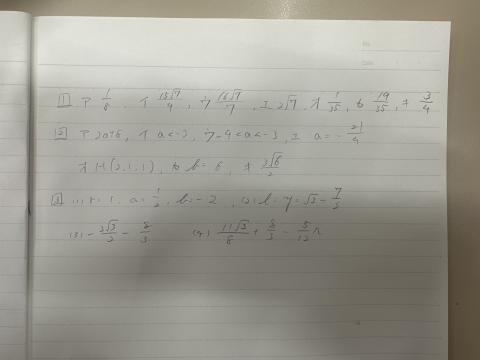 No.
Date
[1] ア 1/8, イ 15√7/4, ウ 16√7/7, エ 2√7, オ 1/35, カ 19/35, キ 3/4
[2] ア 2a+6, イ a<-3, ウ -4<a<-3, エ a=-21/4
オ H(2,1,1), カ b=6, キ 3√6/2
[3] (1) r=1, a=1/2, b=-2, (2) l=y=√3-7/2
(3) -3√3/2-8/3 (4) 11√3/8+8/3-5/12π